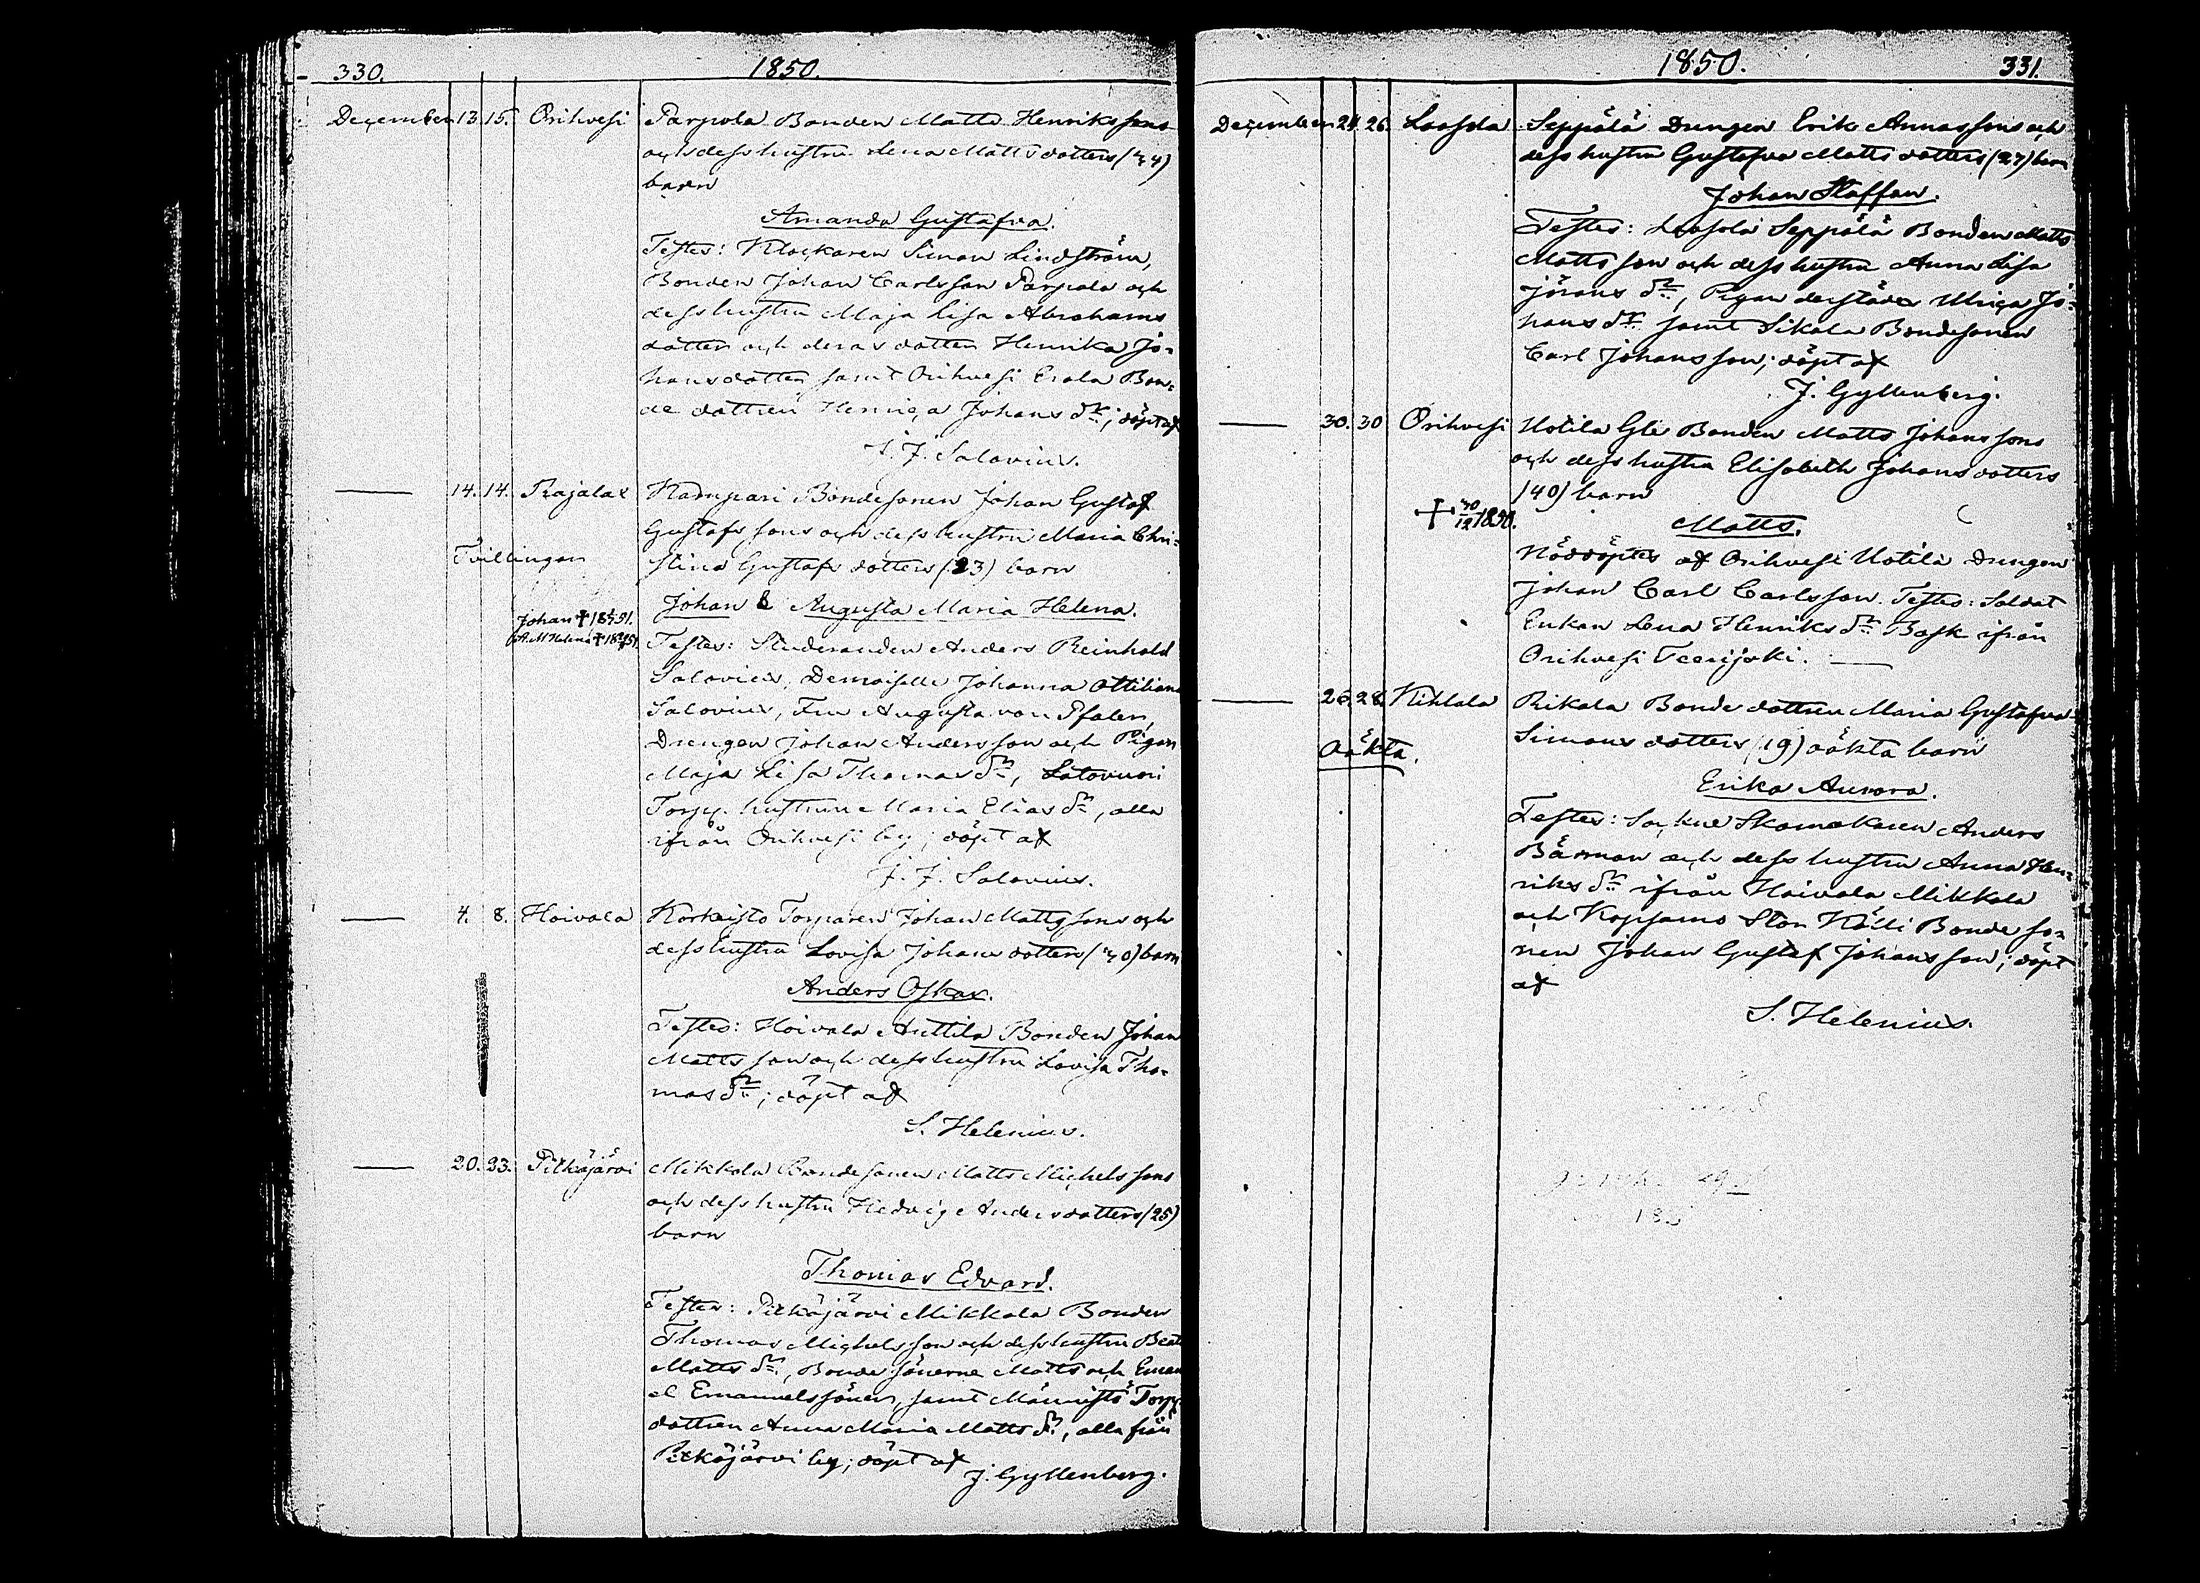 330. 1850.
December 13. 15. Orihvesi Parpola Bonden Matts Henrikssons
och dess hustru Lena Matts dotters (34)
barn
Amanda Gustafva.
Testes: Klockaren Simon Lindström,
Bonden Johan Carlsson Parpola och
dess hustru Maja Lisa Abrahams
dotter och deras dotter Henrika Jo-
hansdotter samt Orihvesi Erola Bon-
de dottren Henrica Johans dr; döpt af
J. J. Salovius.
14. 14. Rajalax Bondesonen Johan Gustaf
Gustafs sons och dess hustru Maria Chri-
Tvillingar
stina Gustafs dotters (23) barn
Johan & Augusta Maria Helena.
Johan †
A. M. Helena †
Testes: Studeranden Anders Reinhold
Salovius, Demoiselle Johanna Ottiliana
Salovius, Fru Augusta von Pfaler,
Drengen Johan Andersson och Pigan
Maja Lisa Thomas dr, Latovuori
Torp. hustrun Maria Elias dr, alla
ifrån Orihvesi by; döpt af
J. J. Salovius.
4. 8. Hoivala Korkeisto Torparen Johan Mattssons och
dess hustru Lovisa Johans dotters (40) barn
Anders Oskar.
Testes: Hoivala Anttila Bonden Johan
Matts son och dess hustru Lovisa Tho-
mas dr; döpt af
S. Helenius.
20. 23. Pitkäjärvi Mikkola Bondesonen Matts Michels sons
och dess hustru Hedvig Anders dotters (25)
barn
Thomas Edvard.
Testes: Pitkäjärvi Mikkola Bonden
Thomas Michelsson och dess hustru Beata
Matts dr, Bonde sönerne Matts och Emanu
el Emanuelssöner, samt Männistö Torp.
dottren Anna Maria Matts dr, alla från
Pitkäjärvi by; döpt af J. Gyllenberg.
1850. 331.
December 21. 26. Seppälä Drengen Erik Annassons och
dess hustru Gustafva Matts dotters (27) barn
Johan Staffan.
Testes: Seppälä Bonden Matts
Matts son och dess hustru Anna Lisa
Jörans dr, Pigan derstädes Ulrica Jo-
hans dr samt Sikala Bondesonen
Carl Johansson; döpt af
J. Gyllenberg.
30. 30 Orihvesi Uotila Gle Bonden Matts Johans sons
och dess hustru Elisabeth Johans dotters
(40) barn
† 30/12 1850.
Matts.
Nöddöptes af Orihvesi Uotila Drengen
Johan Carl Carlsson. Testes: Soldat
Enkan Lena Henriks dr Bask ifrån
Orihvesi Teerijoki.
26. 28. Kihlala Rikala Bonde dottren Maria Gustafva
Simons dotters (19) oäkta barn
Oäkta.
Erika Aurora.
Testes: Sockne Skomakaren Anders
Bärman och dess hustru Anna Hen-
riks dr ifrån Hoivala Mikkola
och Kopsamo Stor Källi Bonde so-
nen Johan Gustaf Johansson; döpt
af
S. Helenius.